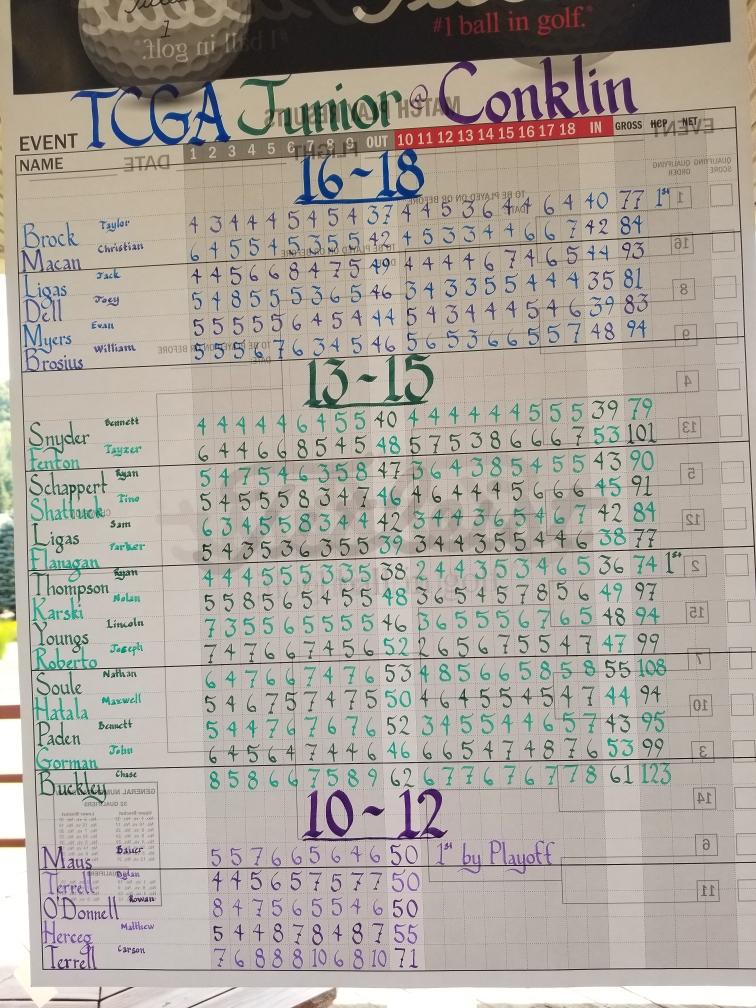 #1 ball in golf.
TCGA Junior @ Conklin
EVENT
NAME 1 2 3 4 5 6 7 8 9 OUT 10 11 12 13 14 15 16 17 18 IN GROSS HCP NET
16~18
Brock Taylor 4 3 4 4 4 5 4 5 4 37 4 4 5 3 6 4 4 6 4 40 77 1st
Macan Christian 6 4 5 5 4 5 3 5 5 42 4 5 3 3 4 4 6 6 7 42 84
Ligas Jack 4 4 5 6 6 8 4 7 5 49 4 4 4 4 6 7 4 6 5 44 93
Dell Joey 5 4 8 5 5 5 3 6 5 46 3 4 3 3 5 5 4 4 4 35 81
Myers Evan 5 5 5 5 5 6 4 5 4 44 5 4 3 4 4 4 5 4 6 39 83
Brosius William 5 5 5 6 7 6 3 4 5 46 5 6 5 3 6 6 5 5 7 48 94
13~15
Snyder Bennett 4 4 4 4 4 6 4 5 5 40 4 4 4 4 4 4 5 5 5 39 79
Fenton Tayzer 6 4 4 6 6 8 5 4 5 48 5 7 5 3 8 6 6 6 7 53 101
Schappert Ryan 5 4 7 5 4 6 3 5 8 47 3 6 4 3 8 5 4 5 5 43 90
Shattuck Tino 5 4 5 5 5 8 3 4 7 46 4 6 4 4 4 5 6 6 6 45 91
Ligas Sam 6 3 4 5 5 8 3 4 4 42 3 4 4 3 6 5 4 6 7 42 84
Flanagan Parker 5 4 3 5 3 6 3 5 5 39 3 4 4 3 5 5 4 4 6 38 77
Thompson Ryan 4 4 4 5 5 5 3 3 5 38 2 4 4 3 5 3 4 6 5 36 74 1st
Karski Nolan 5 5 8 5 6 5 4 5 5 48 3 6 5 4 5 7 8 5 6 49 97
Youngs Lincoln 7 3 5 5 6 5 5 5 5 46 3 6 5 5 5 6 7 6 5 48 94
Roberto Joseph 7 4 7 6 6 7 4 5 6 52 2 6 5 6 7 5 5 4 7 47 99
Soule Nathan 6 4 7 6 6 7 4 7 6 53 4 8 5 6 6 5 8 5 8 55 108
Hatala Maxwell 5 4 6 7 5 7 4 7 5 50 4 6 4 5 5 4 5 4 7 44 94
Paden Bennett 5 4 4 7 6 7 6 7 6 52 3 4 5 5 4 4 6 5 7 43 95
Gorman John 6 4 5 6 4 7 4 4 6 46 6 6 5 4 7 4 8 7 6 53 99
Buckley Chase 8 5 8 6 6 7 5 8 9 62 6 7 7 6 7 6 7 7 8 61 123
10~12
Maus Bauer 5 5 7 6 6 5 6 4 6 50 1st by Playoff
Terrell Dylan 4 4 5 6 5 7 5 7 7 50
O'Donnell Rowan 8 4 7 5 6 5 5 4 6 50
Herceg Matthew 5 4 4 8 7 8 4 8 7 55
Terrell Carson 7 6 8 8 8 10 6 8 10 71